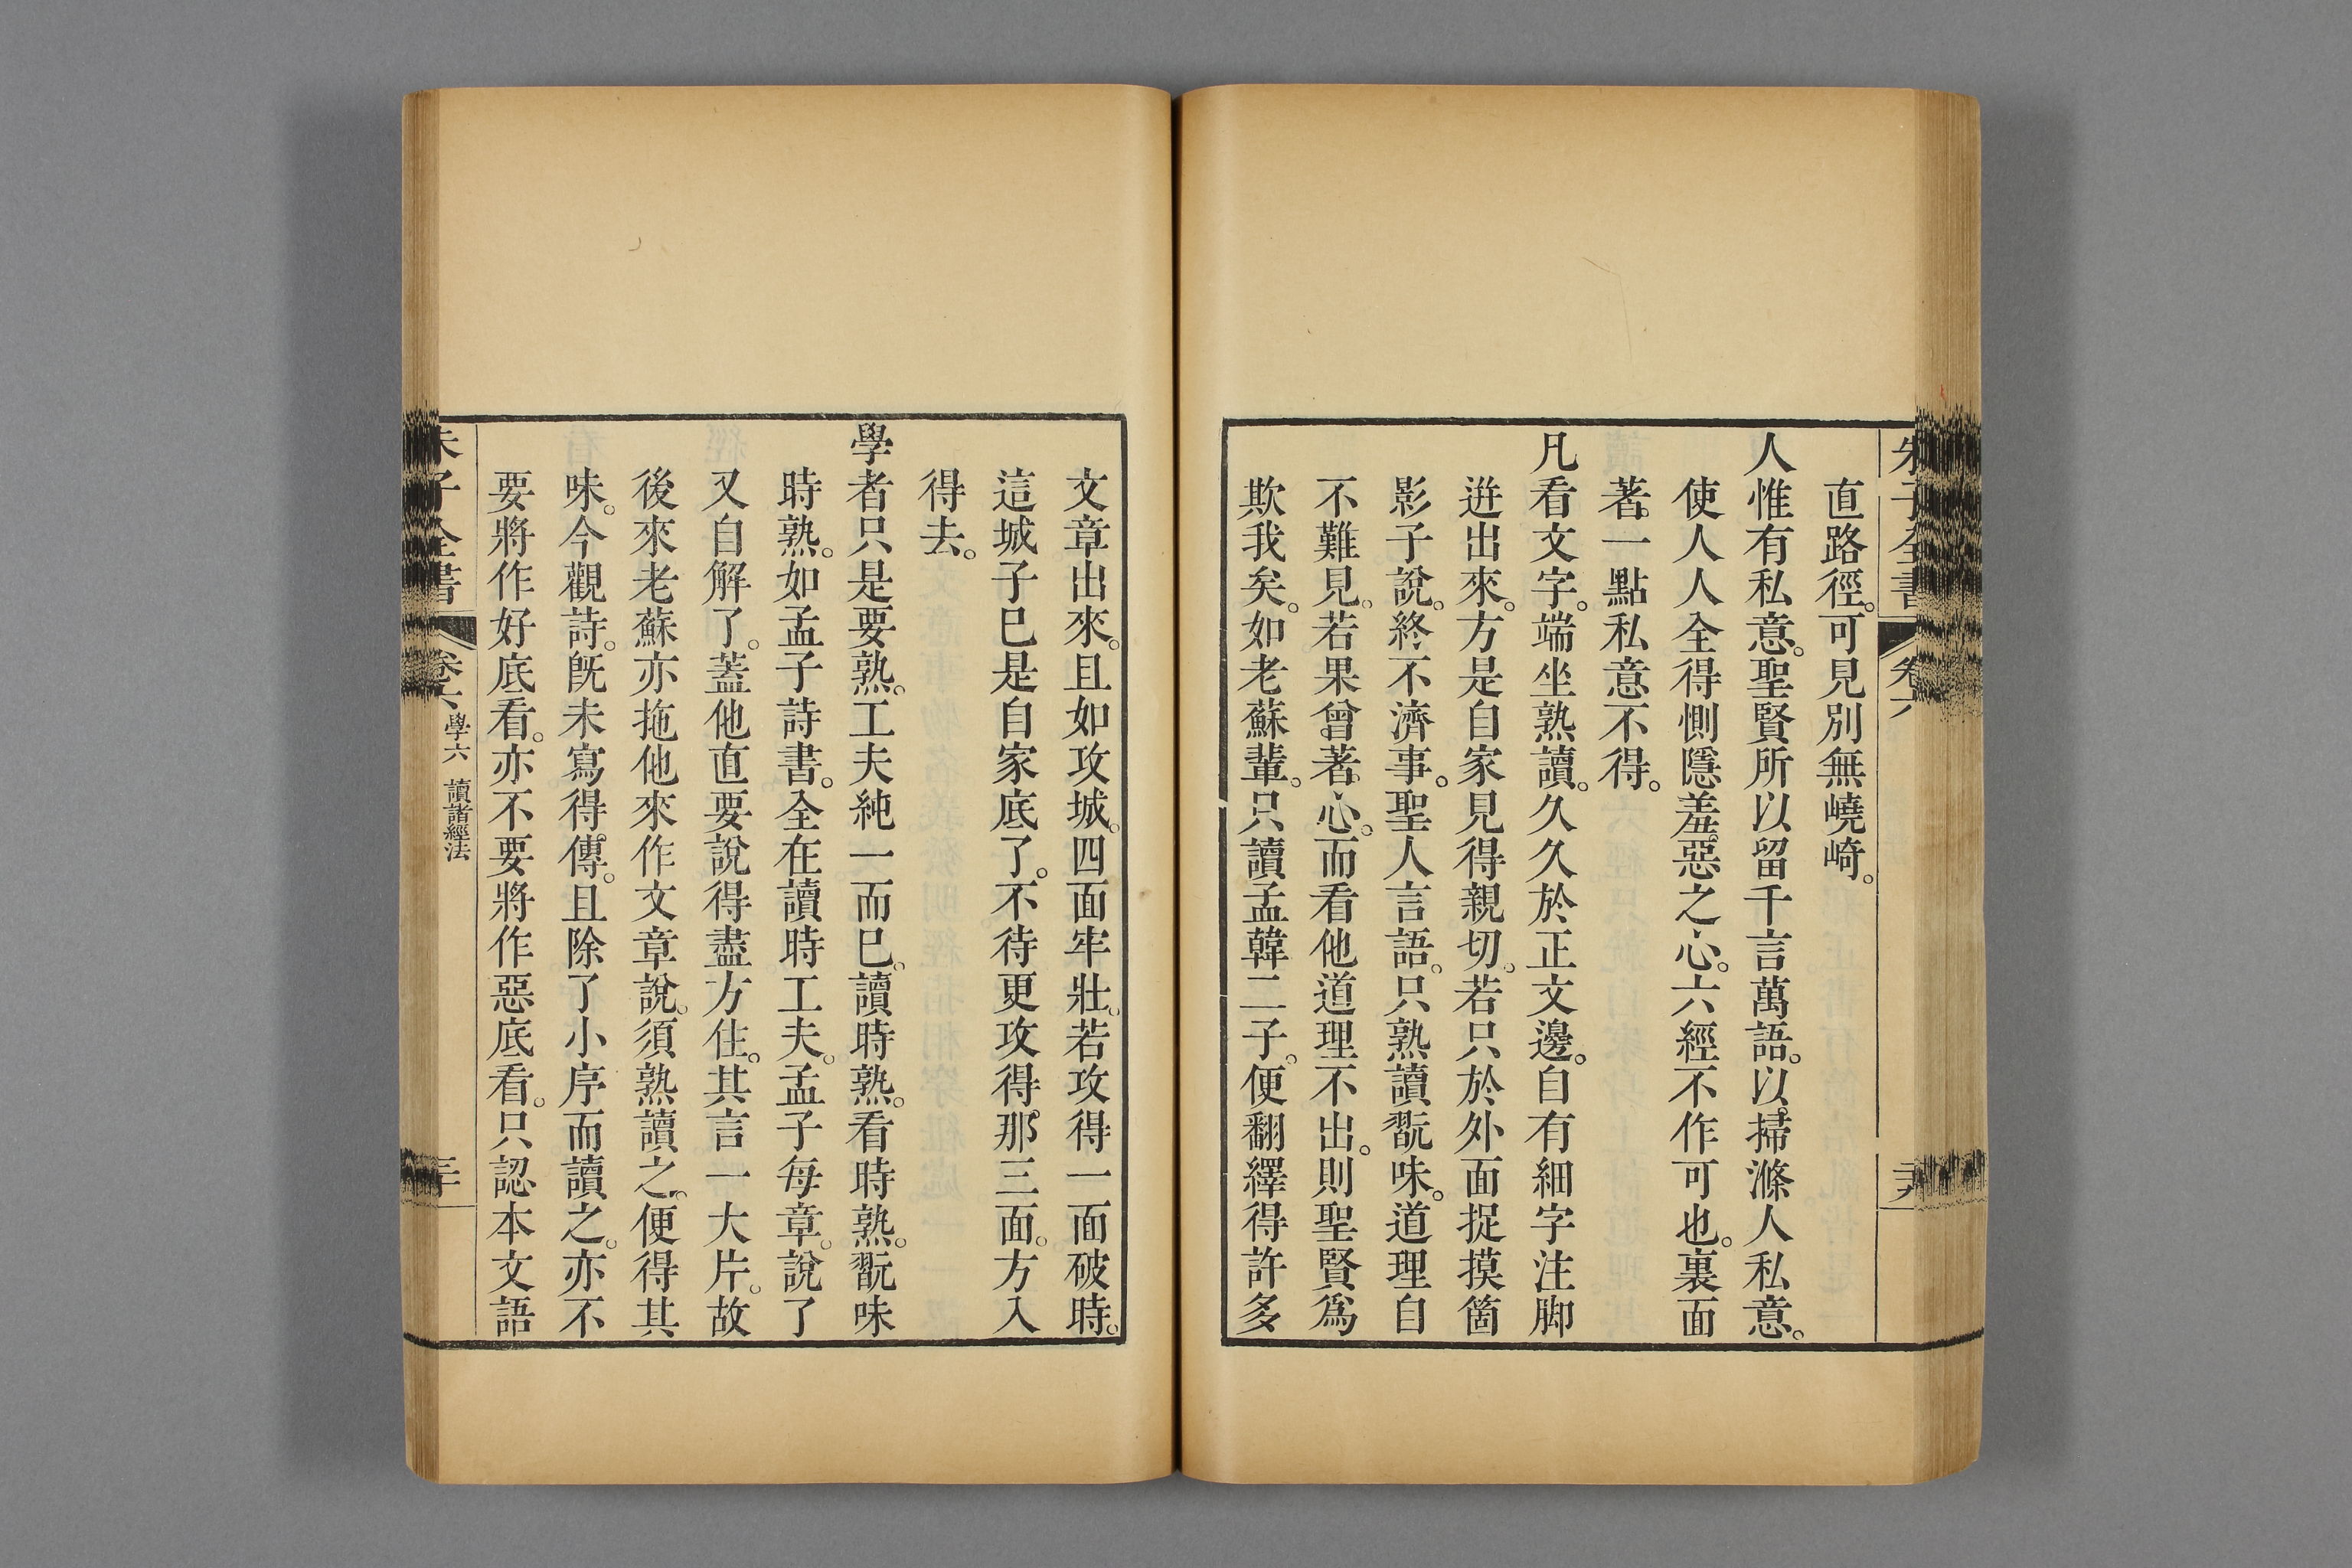 直路徑。可見別無嶢崎。
人惟有私意。聖賢所以留千言萬語。以掃滌人私意。
使人人全得惻隱羞惡之心。六經不作可也。裏面
著一點私意不得。
凡看文字。端坐熟讀。久久於正文邊。自有細字注脚
迸出來。方是自家見得親切。若只於外面捉摸箇
影子說。終不濟事。聖人言語。只熟讀翫味。道理自
不難見。若果曾著心。而看他道理不出。則聖賢爲
欺我矣。如老蘇輩。只讀孟韓二子。便翻繹得許多
文章出來。且如攻城。四面牢壯。若攻得一面破時。
這城子已是自家底了。不待更攻得那三面。方入
得去。
學者只是要熟。工夫純一而已。讀時熟。看時熟。翫味
時熟。如孟子詩書。全在讀時工夫。孟子每章。說了
又自解了。蓋他直要說得盡方住。其言一大片。故
後來老蘇亦拖他來作文章說。須熟讀之。便得其
味。今觀詩。旣未寫得傳。且除了小序而讀之。亦不
要將作好底看。亦不要將作惡底看。只認本文語
朱子全書 卷六 學六 讀諸經法